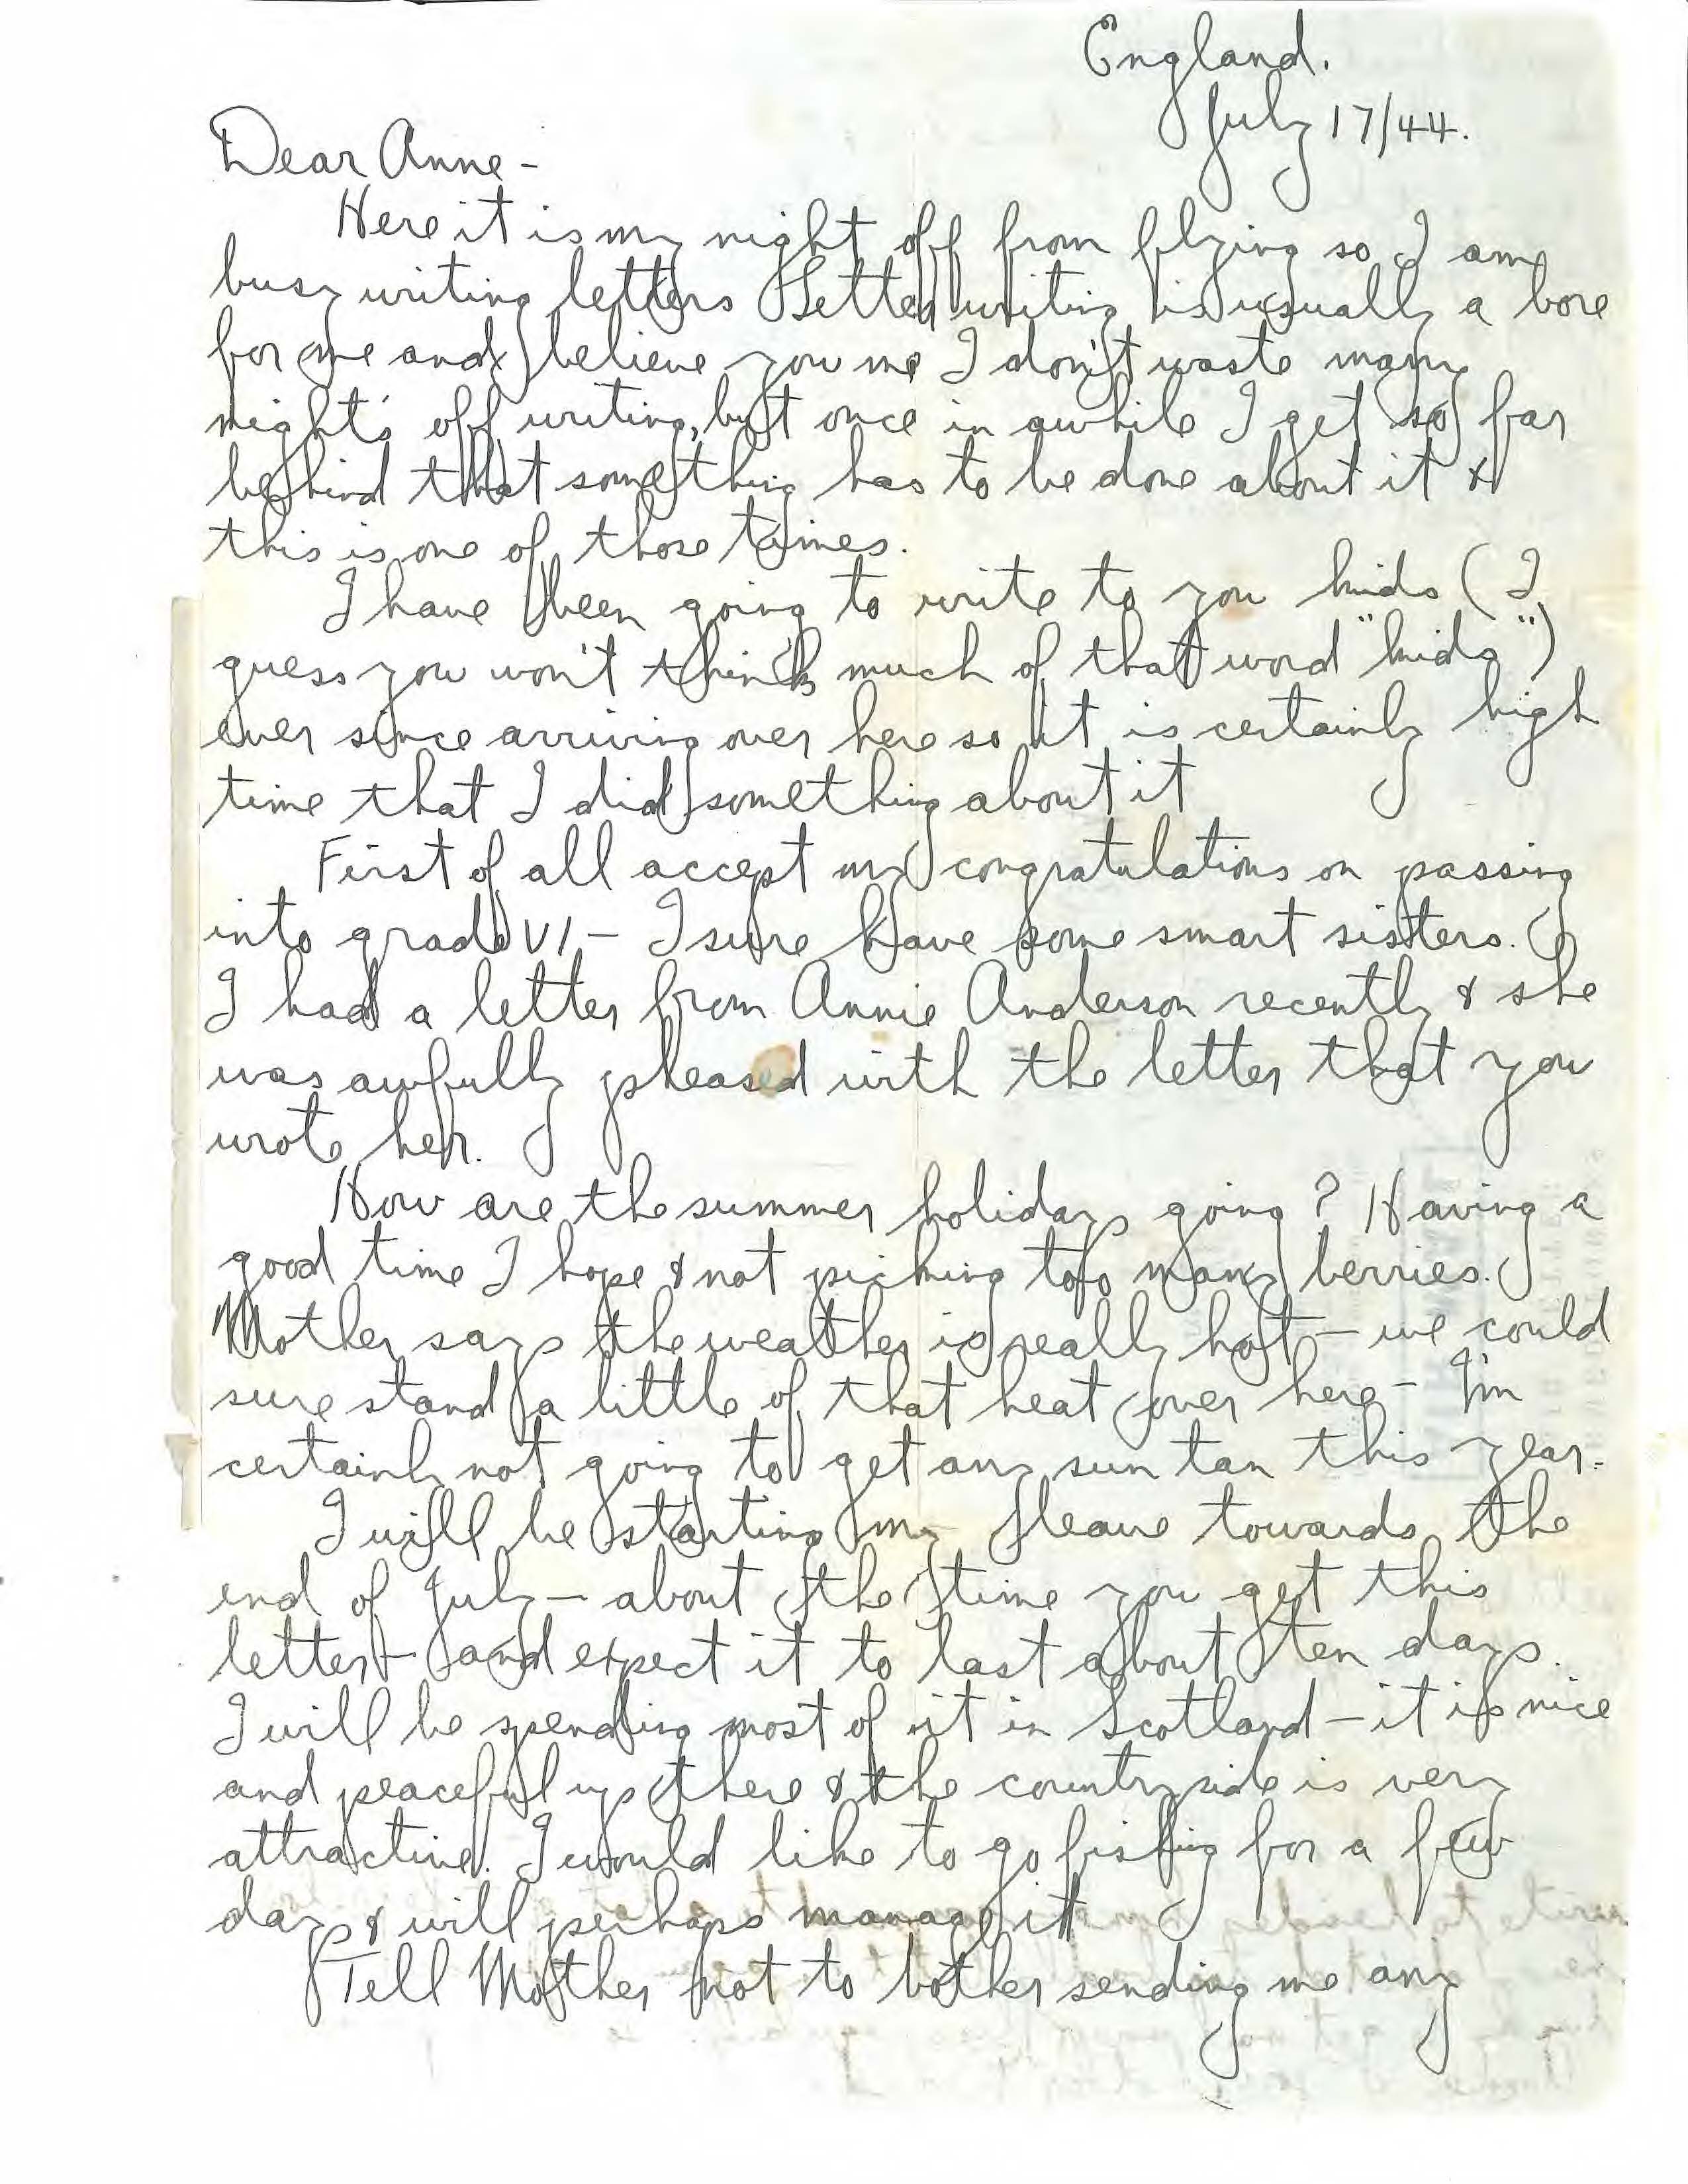 England.
July 17/44.
Dear Anne-
Here it is my night off from flying so I am
busy writing letters Letter writing is usually a bore
for me and believe you me I don't waste many
night's off writing, but once in awhile I get so far
behind that something has to be done about it &
this is one of those times.
I have been going to write to you kids (I
guess you won't think much of that word "kids")
ever since arriving over here so it is certainly high
time that I did something about it
First of all accept my congratulations on passing
into grade VI - I sure have some smart sisters.
I had a letter from Annie Anderson recently & she
was awfully pleased with the letter that you
wrote her.
How are the summer holidays going? Having a
good time I hope & not picking too many berries.
Mother says the weather is really hot - we could
sure stand a little of that heat over here - I'm
certainly not going to get any sun tan this year.
I will be starting my leave towards the
end of July - about the time you get this
letter - and expect it to last about ten days.
I will be spending most of it in Scotland - it is nice
and peaceful up there & the countryside is very
attractive. I would like to go fishing for a few
days & will perhaps manage it
Tell Mother not to bother sending me any